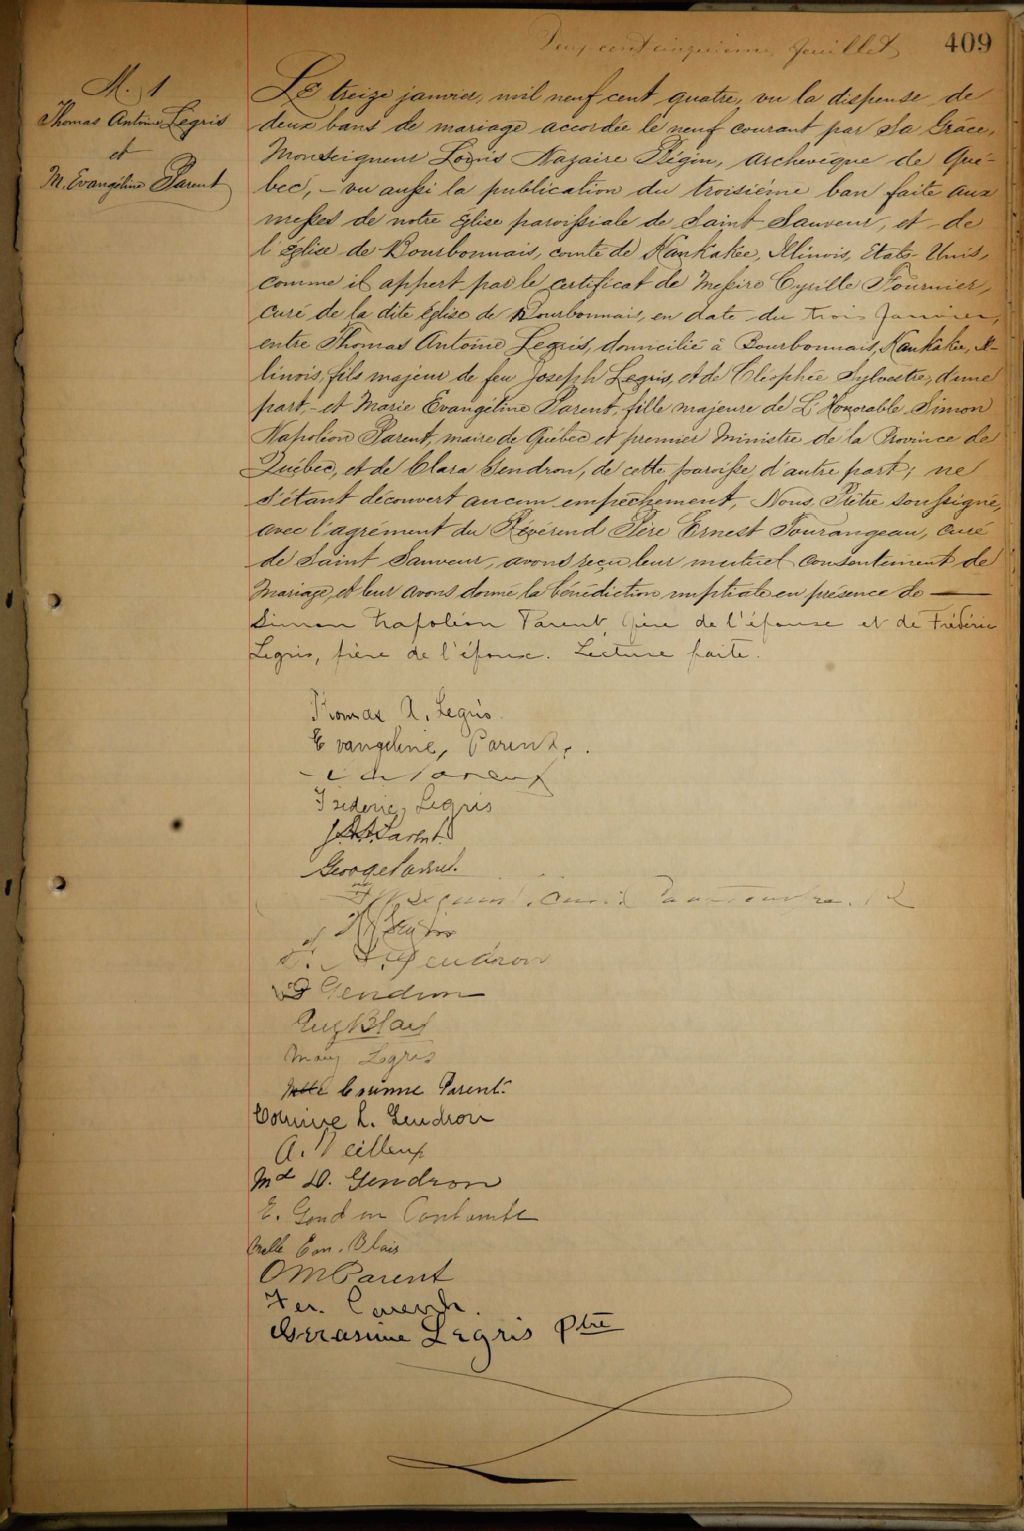 Deux cent cinquième feuillet
409
M. 1
Thomas Antoine Legris
et
M. Evangéline Parent
Le treize janvier, mil neuf cent quatre, vu la dispense de
deux bans de mariage accordée le neuf courant par Sa Grâce,
Monseigneur Louis Nazaire Bégin, archevêque de Qué-
bec, - vu aussi la publication du troisième ban faite aux
messes de notre église paroissiale de Saint Sauveur, et de
l'église de Bourbonnais, comté de Kankakee, Illinois, Etats-Unis,
comme il appert par le certificat de Messire Cyrille Fournier,
curé de la dite église de Bourbonnais, en date du trois Janvier,
entre Thomas Antoine Legris, domicilié à Bourbonnais, Kankakee, Il-
linois, fils majeur de feu Joseph Legris, et de Cléophée Sylvestre, d'une
part, - et Marie Evangéline Parent, fille majeure de L'Honorable Simon
Napoléon Parent, maire de Québec et premier Ministre de la Province de
Québec, et de Clara Gendron, de cette paroisse d'autre part; ne
s'étant découvert aucun empêchement, Nous Prêtre soussigné,
avec l'agrément du Révérend Père Ernest Tourangeau, curé
de Saint Sauveur, avons reçu leur mutuel consentement de
Mariage, et leur avons donné la bénédiction nuptiale en présence de —
Simon Napoléon Parent, père de l'épouse et de Frédéric
Legris, frère de l'époux. Lecture faite.
Thomas A. Legris
Evangeline, Parent.
Parent
Frederic Legris
Parent.
George Parent.
Gendron
Gendron
Blais
Mary Legris
Corinne Parent.
Corinne L. Gendron
A. Veilleux
Md D. Gendron
E. Gend
Melle Eon. Blais
OM Parent
Fer. Parent.
Gerasime Legris Ptre